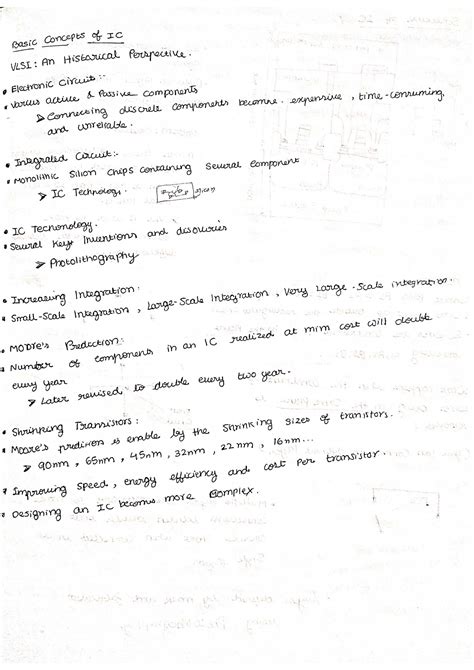 Basic Concepts of IC
VLSI: An Historical Perspective.
• Electronic Circuit :-
• Various active & Passive Components
➢ Connecting discrete components become expensive, time-consuming,
and unreliable.
• Integrated Circuit:-
• Monolithic Silion Chips containing Several Component
➢ IC Technology
• IC Technonology.
• Several Key Inventions and discovries
➢ Protolithography
• Increasing Integration:
• Small-Scale Integration, Large-Scale Integration, Very Large-Scale integration.
• MOORE's Prediction:
• Number of components in an IC realized at mim cost will double
every year
➢ Later revised to double every two year.
• Shrinking Transistors:
• Moore's predition is enable by the Shrinking sizes of tranistors.
➢ 90nm, 65nm, 45nm, 32nm, 22nm, 16nm...
• Improving speed, energy efficiency and cost per transistor.
• Designing an IC becomes more Complex.